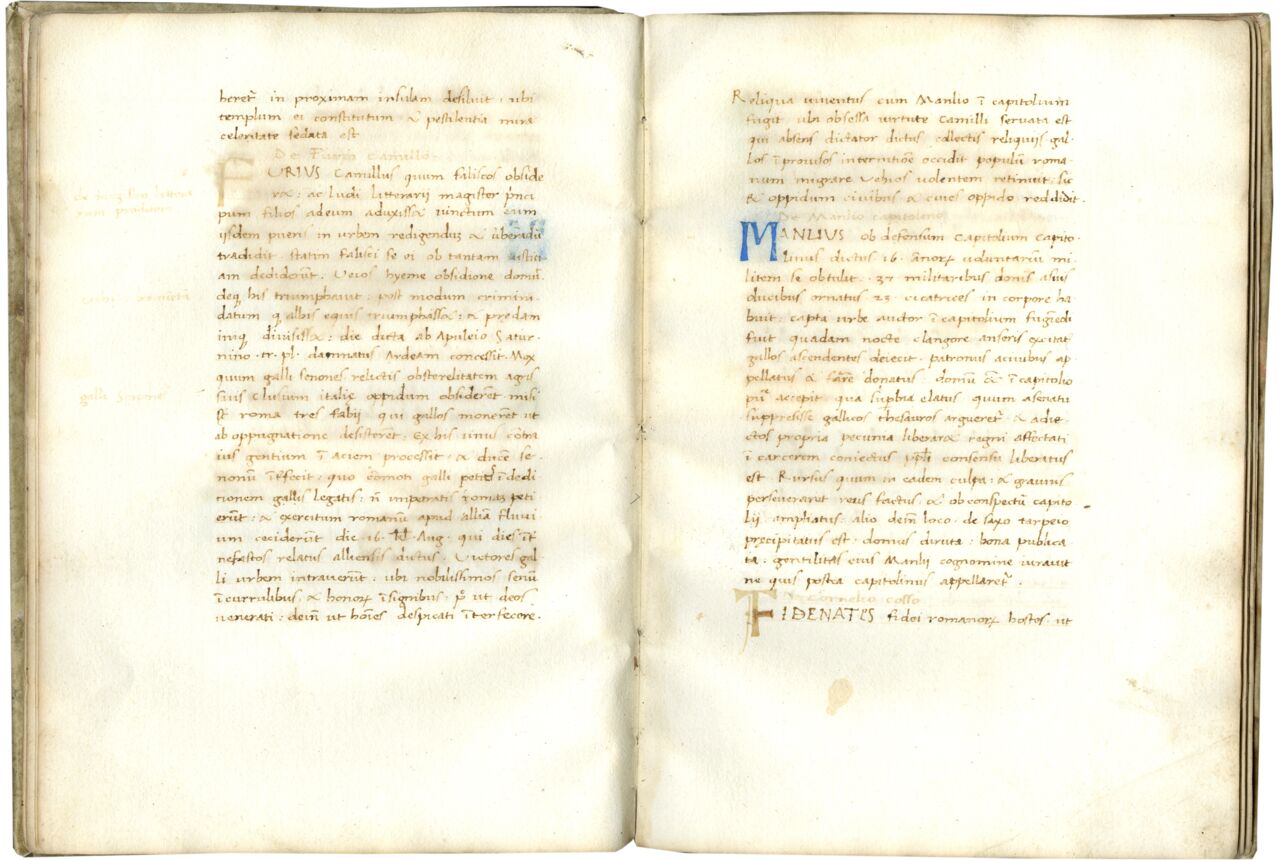 heret᷑ in proximam insulam desiluit · ubi
templum ei constitutum & pestilentia mira
celeritate sedata est
De Furio Camillo
FURIUS Camillus quum faliscos obside
r&: ac ludi litterarii magister p̃nci
pum filios adeum aduxiss& iunctum eum
iisdem pueris in urbem redigendũ &
tradidit · statim falisci se ei ob tantam iustici
am dediderũt · Veios hyeme obsidione domũ·
deq his triumphauit : post modum crimini·
datum q albis equis triumphass& : & predam
iniq̨ diuisiss& : die dicta ab Apuleio Satur·
nino · tr · pl · damnatus Ardeam concessit · Mox
quum galli senones relictis obsterelitatem agris
suis clusium italie oppidum obsiderẽt misi
st̃ roma tres fabij qui gallos monerẽt ut
ab oppugnatione desisterẽt · Ex his unus cõtra
ius gentium ĩ aciem processit · & ducẽ se·
nonũ ĩt᷑fecit · quo cõmoti galli ĩ dedi
tionem gallis legatis : ñ impetratis romã peti
erũt : & exercitum romanũ apud alliã fluui·
um ceciderũt die 16 · kl · Aug · qui dies ĩt᷑
nefastos relatus alliensis dictus · Victores gal·
li urbem intrauerũt · ubi nobilissimos senũ
ĩ curulibus · & honorꝝ ĩsignibus · p᷑ ut deos
uenerati : deiñ ut hoĩes despicati ĩterfecere ·
galli Senone
Reliqua iuuentus cum Manlio ĩ capitolium
fugit ubi obsessa uirtute Camilli seruata est
qui absens dictator dictus collectis reliquiis gal·
los ĩprouisos internitiõe occidit populũ roma·
num migrare Vehios uolentem retinuit · sic
& oppidum ciuibus & ciues oppido reddidit ·
De Manlio capitolino
MANLIUS ob defensum Capitolium Capito·
linus dictus 16 · ãnorꝝ uoluntariũ mi·
litem se obtulit · 37 militaribus donis a suis
ducibus ornatus 23 cicatrices in corpore ha·
buit : capta urbe auctor ĩ capitolium fugiẽdi
fuit quadam nocte clangore anseris excitat᷑
gallos ascendentes deiecit · patronus a ciuibus ap·
pellatus & farre donatus : domũ &̃ ĩ capitolio
accepit qua sup̃bia elatus quum asenatu
suppresisse gallicos thesauros arguerer᷑ · & adie·
ctos propria pecunia liberar& regni affectati
ĩ carcerem coniectus pp̃li consensu liberatus
est Rursus quum in eadem culpa : & grauius
perseueraret reus factus & ob conspectũ capito
lij ampliatus · alio deiñ loco · de saxo tarpeio
præcipitatus est · domus diruta : bona publica
ta : gentilitas eius Manlij cognomine iurauit
ne quis postea capitolinus appellaret᷑ ·
De Cornelio cosso
FIDENATES fidei romanorꝝ hostes · ut